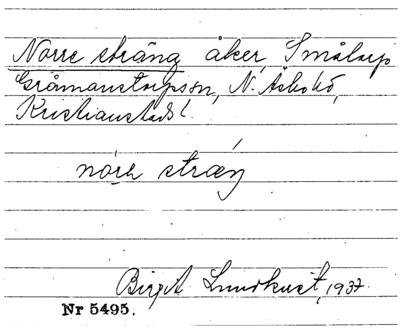 Norre sträng åker, Smålarp
Gråmanstorpssn, N. Åsbohd,
Kristianstads l.
nörk stræŋ
Birgit Lundkvist, 1937.
Nr 5495.